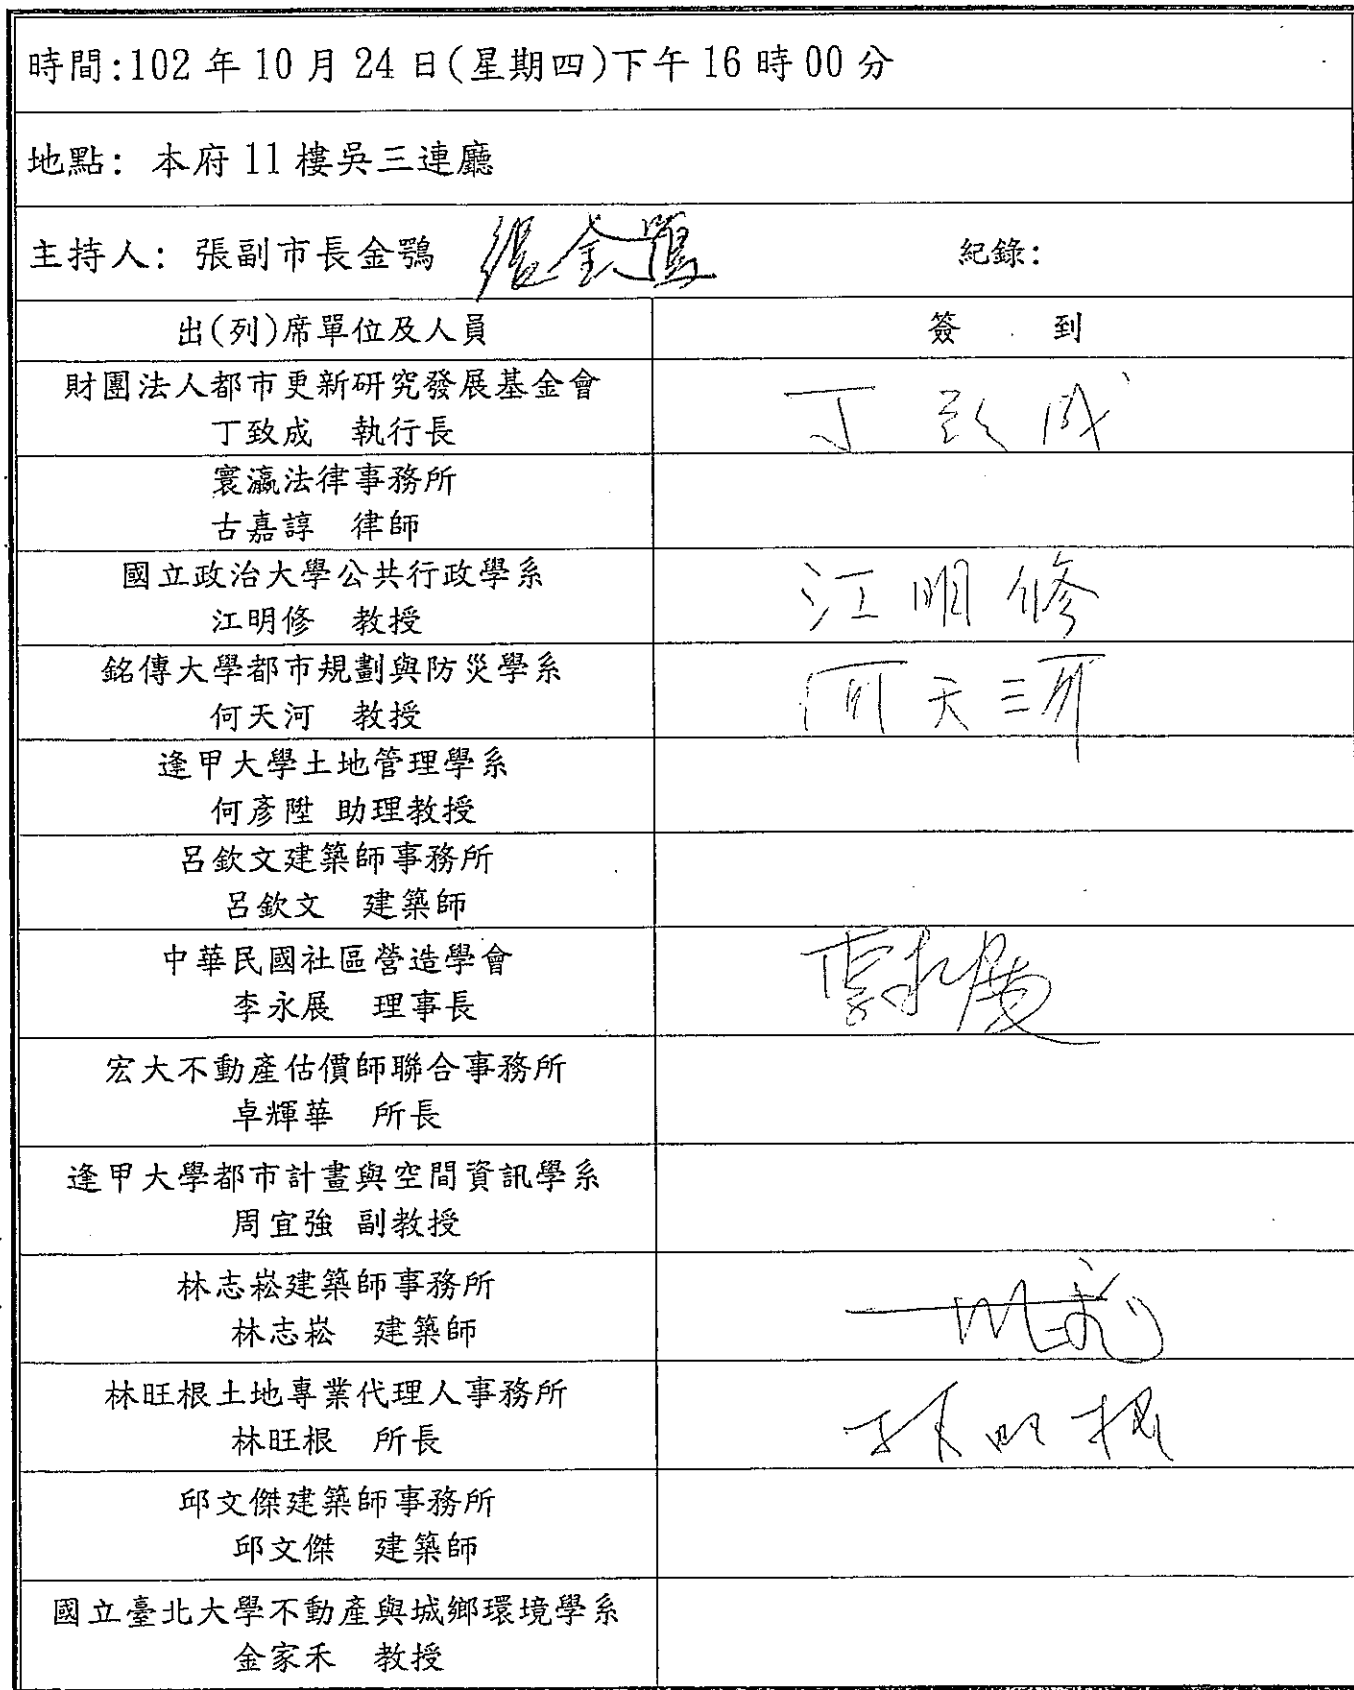 時間:102年10月24日(星期四)下午16時00分
地點: 本府11樓吳三連廳
主持人: 張副市長金鶚 張金鶚 紀錄:
出(列)席單位及人員 簽 到
財團法人都市更新研究發展基金會
丁致成 執行長 丁致成
寰瀛法律事務所
古嘉諄 律師
國立政治大學公共行政學系
江明修 教授 江明修
銘傳大學都市規劃與防災學系
何天河 教授 何天河
逢甲大學土地管理學系
何彥陞 助理教授
呂欽文建築師事務所
呂欽文 建築師
中華民國社區營造學會
李永展 理事長 李永展
宏大不動產估價師聯合事務所
卓輝華 所長
逢甲大學都市計畫與空間資訊學系
周宜強 副教授
林志崧建築師事務所
林志崧 建築師
林旺根土地專業代理人事務所
林旺根 所長 林旺根
邱文傑建築師事務所
邱文傑 建築師
國立臺北大學不動產與城鄉環境學系
金家禾 教授